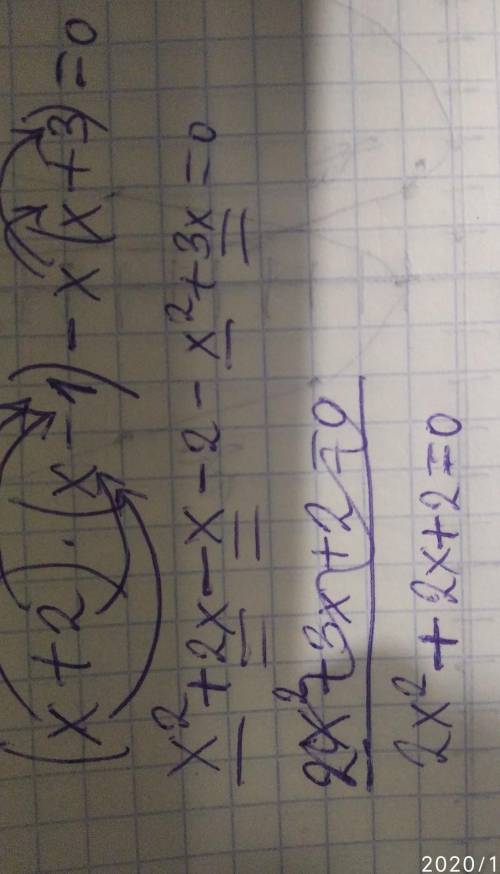 (x+2)·(x-1)-x(x+3)=0
x²+2x-x-2-x²+3x=0
2x²+3x+2=0
2x²+2x+2=0
2020/1